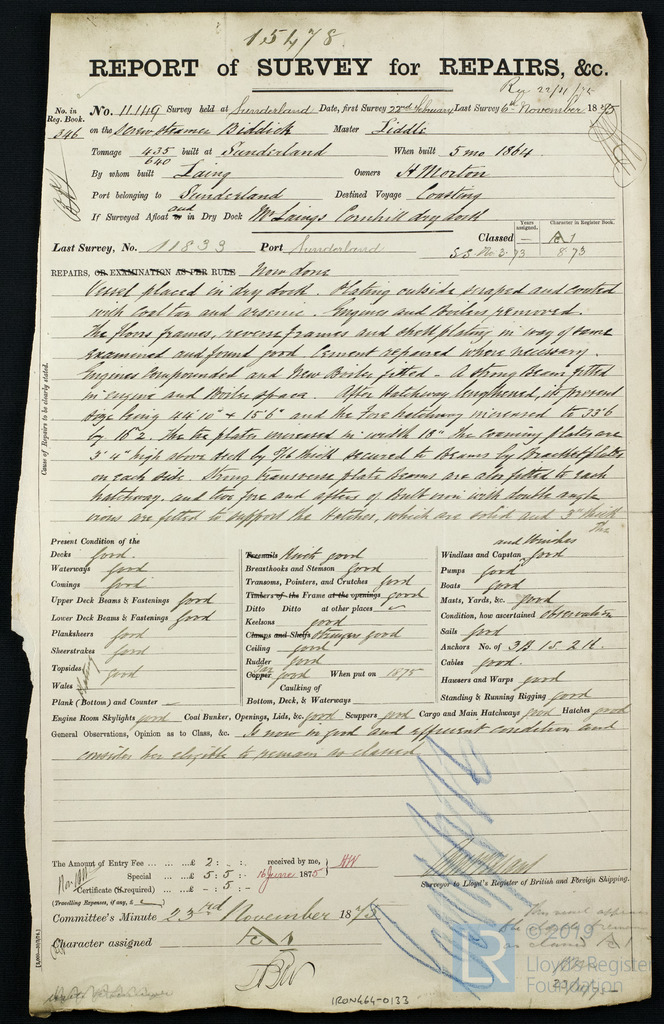 15478
REPORT of SURVEY for REPAIRS, &c.
Rec 22/11/75
No. in Reg. Book. No. 11.149 Survey held at Sunderland Date, first Survey 22nd February Last Survey 6th November 1875
346 on the Screw Steamer Biddick Master Liddle
Tonnage 435 / 640 built at Sunderland When built 5 mo 1864
By whom built Laing Owners H Morton
Port belonging to Sunderland Destined Voyage Coasting
If Surveyed Afloat and or in Dry Dock Mr Laings Cornhill dry dock
Years assigned. Character in Register Book.
Last Survey, No. 11833 Port Sunderland Classed — A 1
S.S. No. 3-73 8.73
REPAIRS, OR EXAMINATION AS PER RULE Now done
Vessel placed in dry dock. Plating outside scraped and coated
with coal tar and arsenic. Engines and Boilers removed.
The floors frames, reverse frames and shell plating in way of same
examined and found good. Cement repaired where necessary.
Engines Compounded and New Boiler fitted - A strong Beam fitted
in engine and Boiler space. After Hatchway lengthened, its present
size being 44'10" + 15'6" and the Fore hatchway increased to 33'6
by 16'2. The tie plates increased in width 18" The coaming plates are
3'4" high above deck by 7/16 thick secured to Beams by Bracket plates
on each side. Strong transverse plate Beams are also fitted to each
hatchway. and two fore and afters of Built iron with double angle
irons are fitted to support the Hatches, which are solid and 3" thick
The
Cause of Repairs to be clearly stated.
Present Condition of the
Decks good
Waterways good
Comings good
Upper Deck Beams & Fastenings good
Lower Deck Beams & Fastenings good
Planksheers good
Sheerstrakes good
Topsides good
Wales Plating
Plank (Bottom) and Counter —
Treenails Rivets good
Breasthooks and Stemson good
Transoms, Pointers, and Crutches good
Timbers of the Frame at the openings good
Ditto Ditto at other places
Keelsons good
Clamps and Shelfs Stringers good
Ceiling good
Rudder good
Copper Tar good When put on 1875
Caulking of
Bottom, Deck, & Waterways
and Winches
Windlass and Capstan good
Pumps good
Boats good
Masts, Yards, &c. good
Condition, how ascertained observation
Sails good
Anchors No. of 3B. 1S. 2K.
Cables good.
Hawsers and Warps good
Standing & Running Rigging good
Engine Room Skylights good Coal Bunker, Openings, Lids, &c. good Scuppers good Cargo and Main Hatchways good Hatches good
General Observations, Opinion as to Class, &c. Is now in good and efficient condition and
consider her eligible to remain as classed
The Amount of Entry Fee ... ... ... £ 2 : - : - received by me,
Special ... ... £ 5 : 5 : - 16 June 1875
Certificate (if required) ... £ - : 5 : -
(Travelling Expenses, if any, £ )
Surveyor to Lloyd's Register of British and Foreign Shipping.
Committee's Minute 23rd November 1875
Character assigned A 1
© 2019
LR Lloyd's Register
Foundation
IRON464-0133